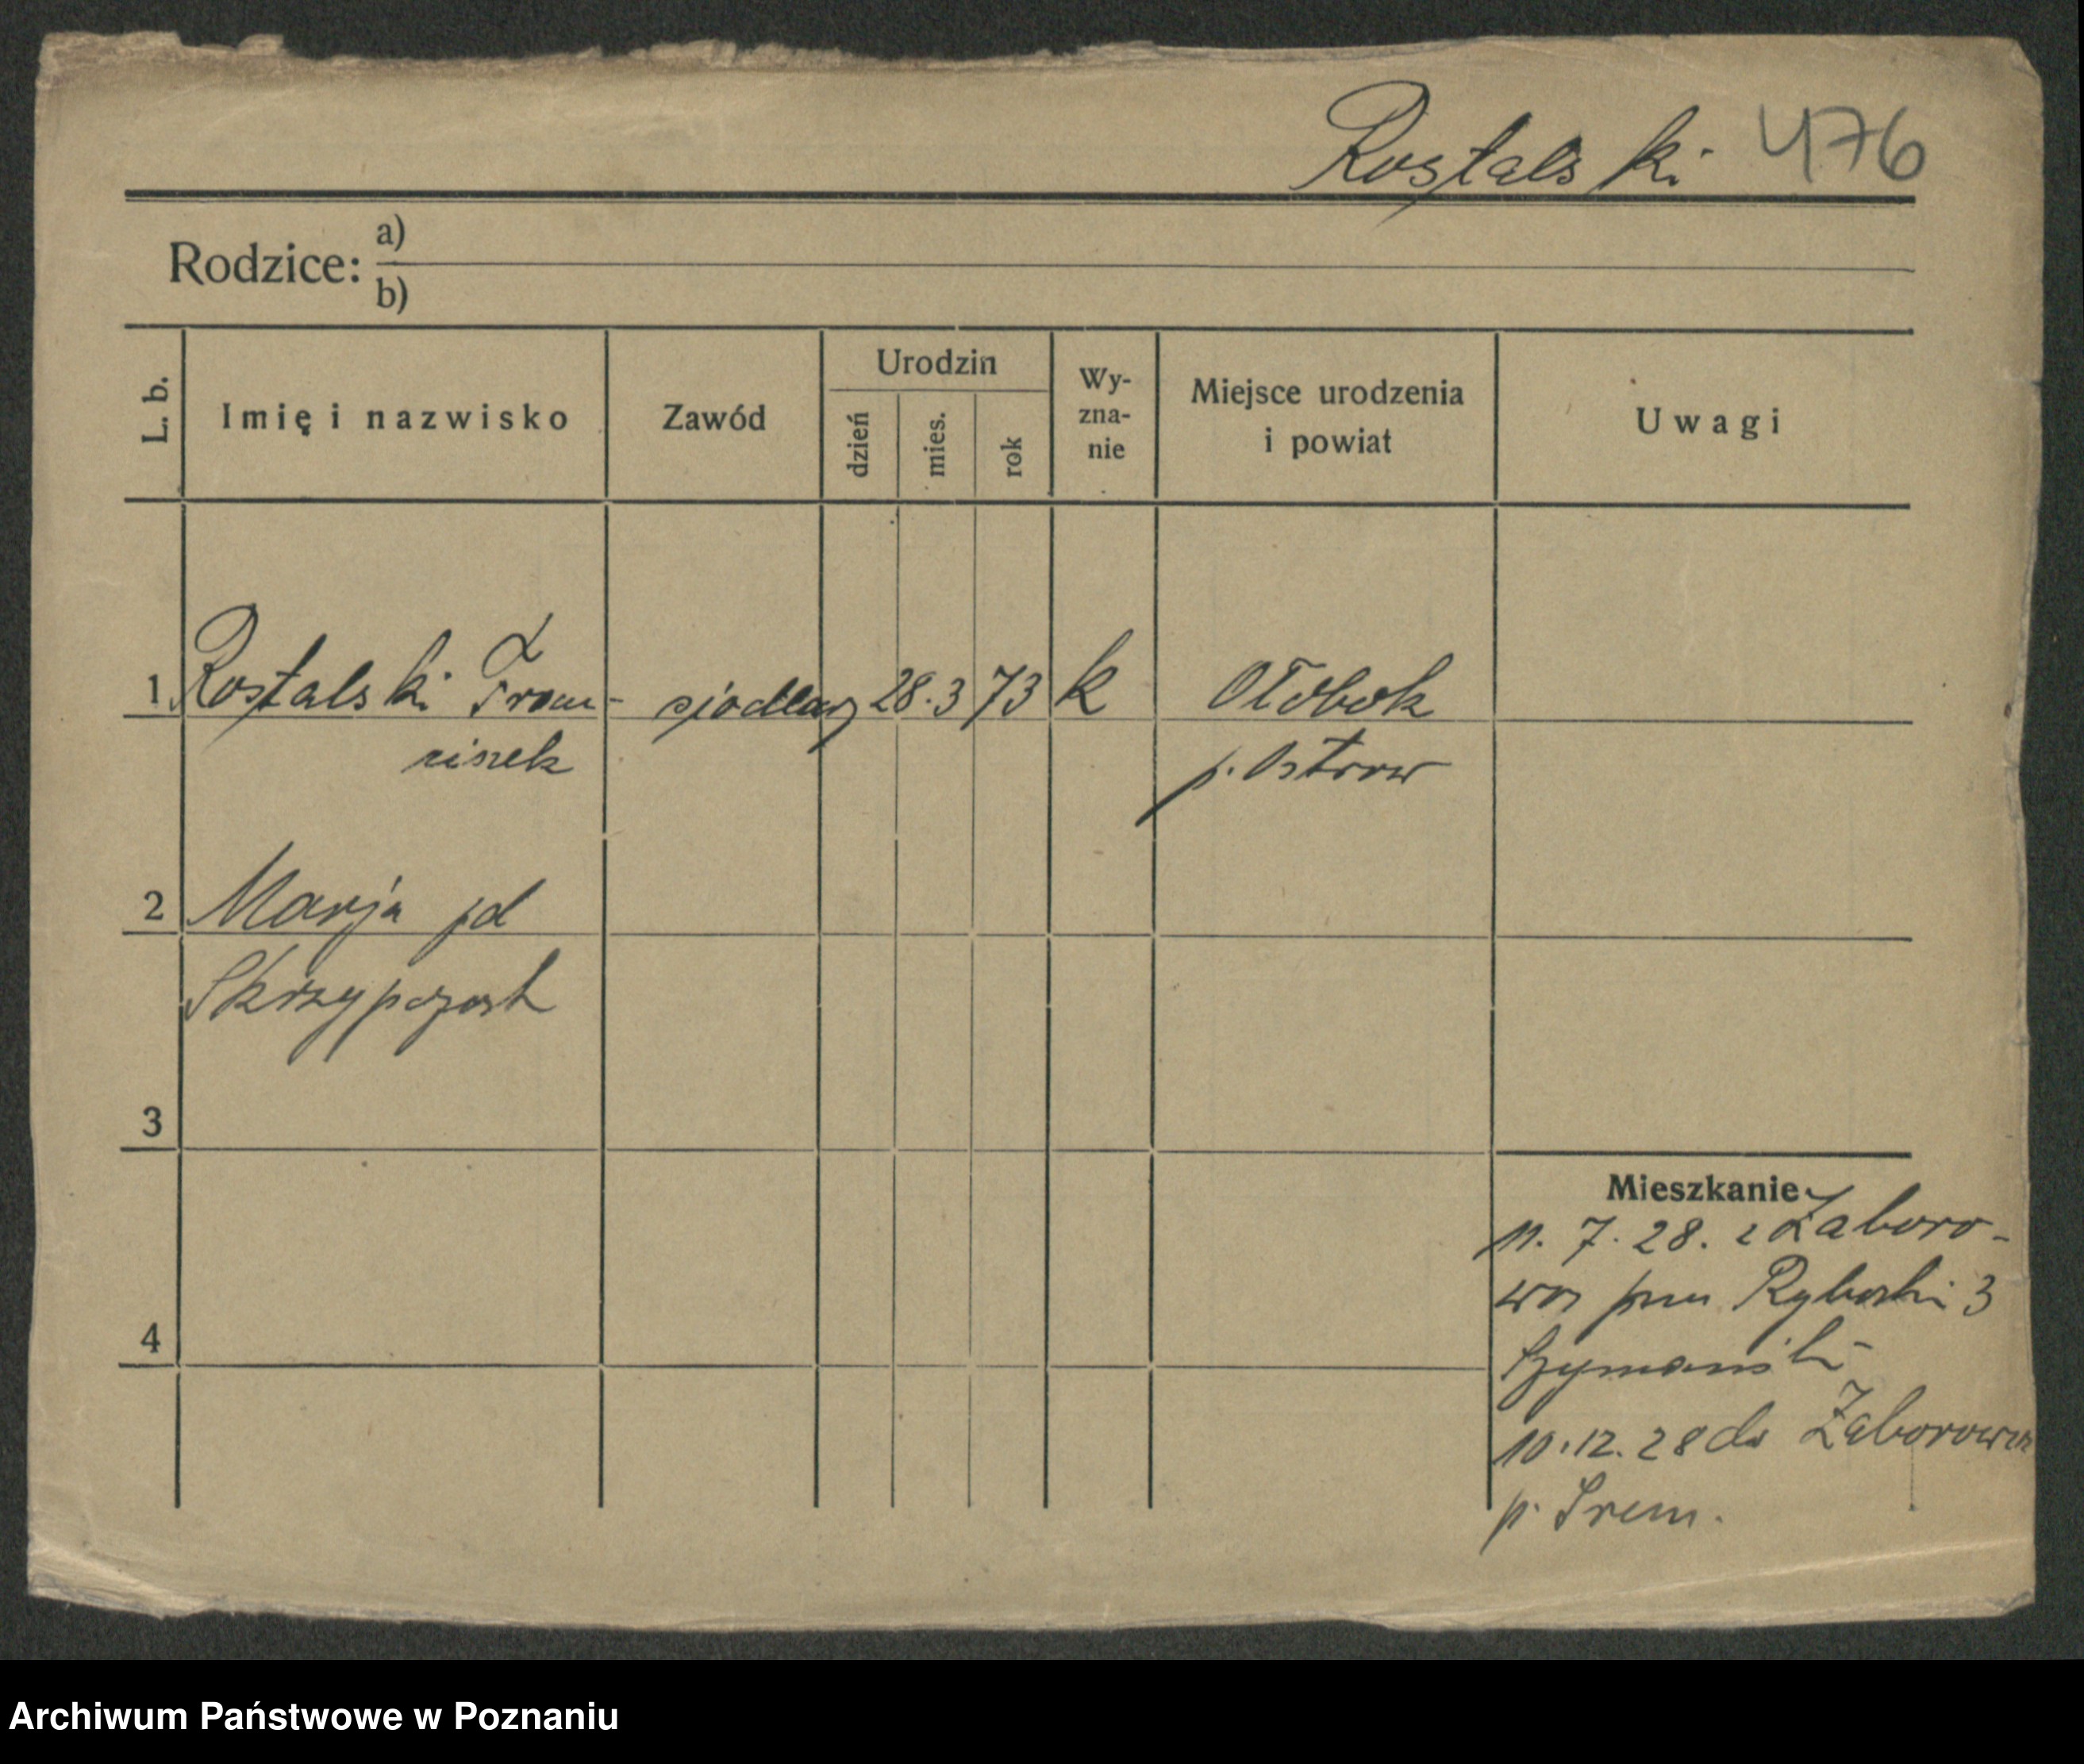 Rostalski 476
Rodzice: a)
b)
L. b.
Imię i nazwisko
Zawód
Urodzin
dzień
mies.
rok
Wy-
zna-
nie
Miejsce urodzenia
i powiat
Uwagi
1 Rostalski Fran- siodlarz 28. 3 73 k Ołobok
ciszek p. Ostrow
2 Marja
Skrzypczak
3
Mieszkanie
11. 7. 28. z Zaboro-
wa Rybaki 3
Szymański
4
10.12.28 do Zaborowa
p. Śrem.
Archiwum Państwowe w Poznaniu